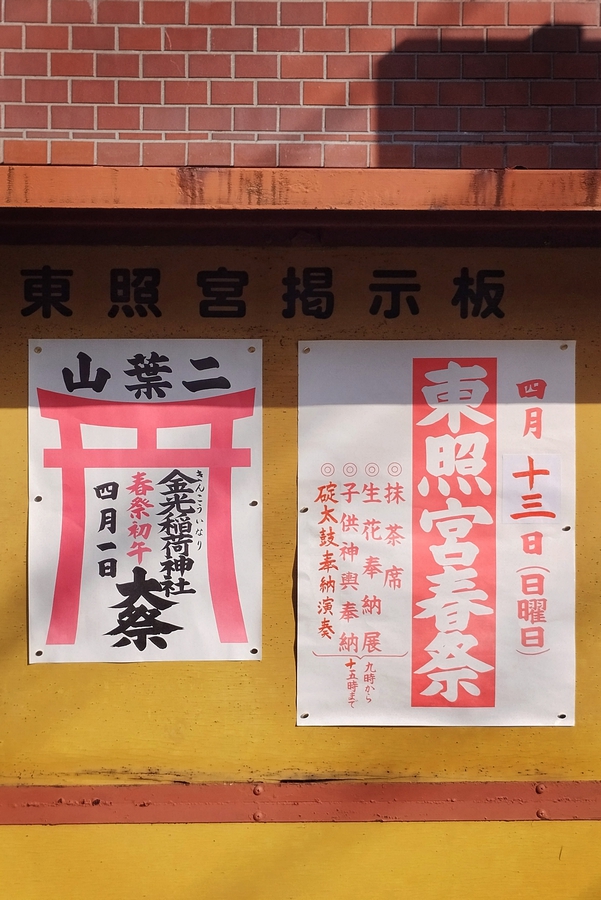 東照宮掲示板
四月十三日(日曜日)
東照宮春祭
◎抹茶席
◎生花奉納展
◎子供神輿奉納
◎碇太鼓奉納演奏
九時から
十五時まで
二葉山
きんこういなり
金光稲荷神社
春祭初午
大祭
四月一日